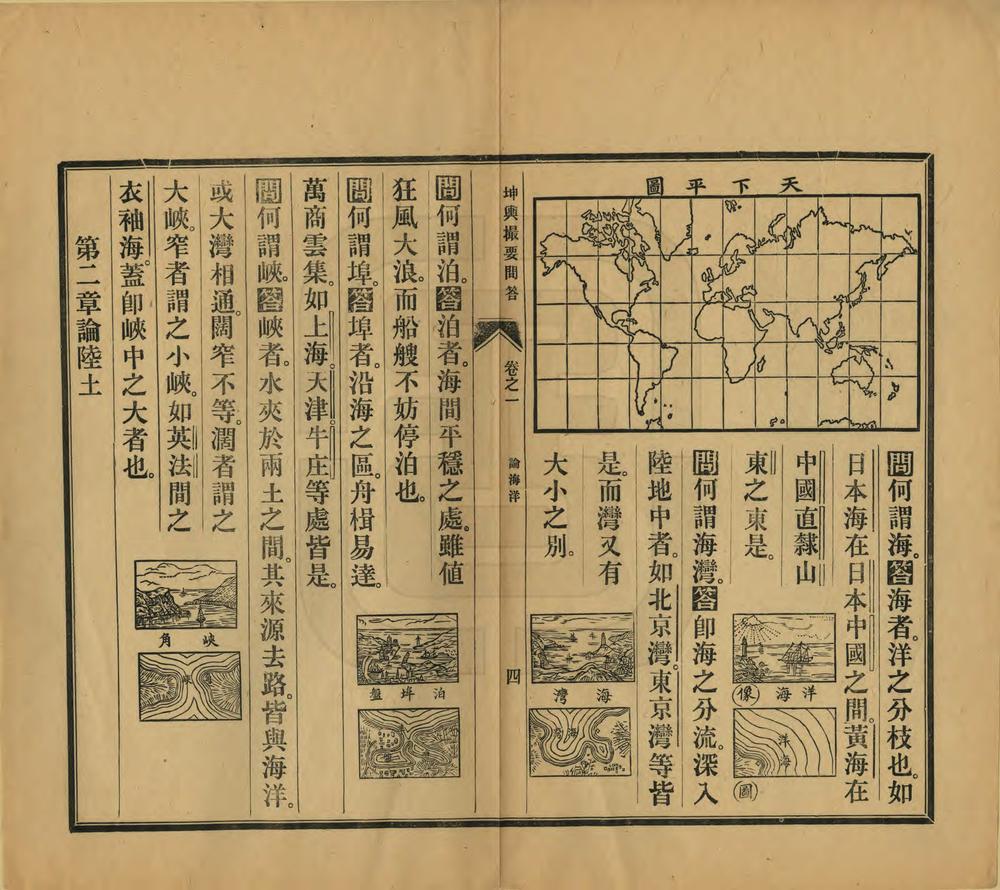 天下平圖
問何謂海。答海者。洋之分枝也。如
日本海在日本中國之間。黃海在
中國直隸山
東之東是。
洋海
像
洋海
圖
問何謂海灣。答卽海之分流。深入
陸地中者。如北京灣。東京灣等皆
是。而灣又有
大小之別。
海灣
海灣
坤輿撮要問答
卷之一
論海洋
四
問何謂泊。答泊者。海間平穩之處。雖値
狂風大浪。而船艘不妨停泊也。
問何謂埠。答埠者。沿海之區。舟楫易達。
萬商雲集。如上海。天津。牛庄等處皆是。
泊埠盤
問何謂峽。答峽者。水夾於兩土之間。其來源去路。皆與海洋。
或大灣相通。闊窄不等。濶者謂之
大峽。窄者謂之小峽。如英法間之
衣袖海。蓋卽峽中之大者也。
峽角
第二章論陸土